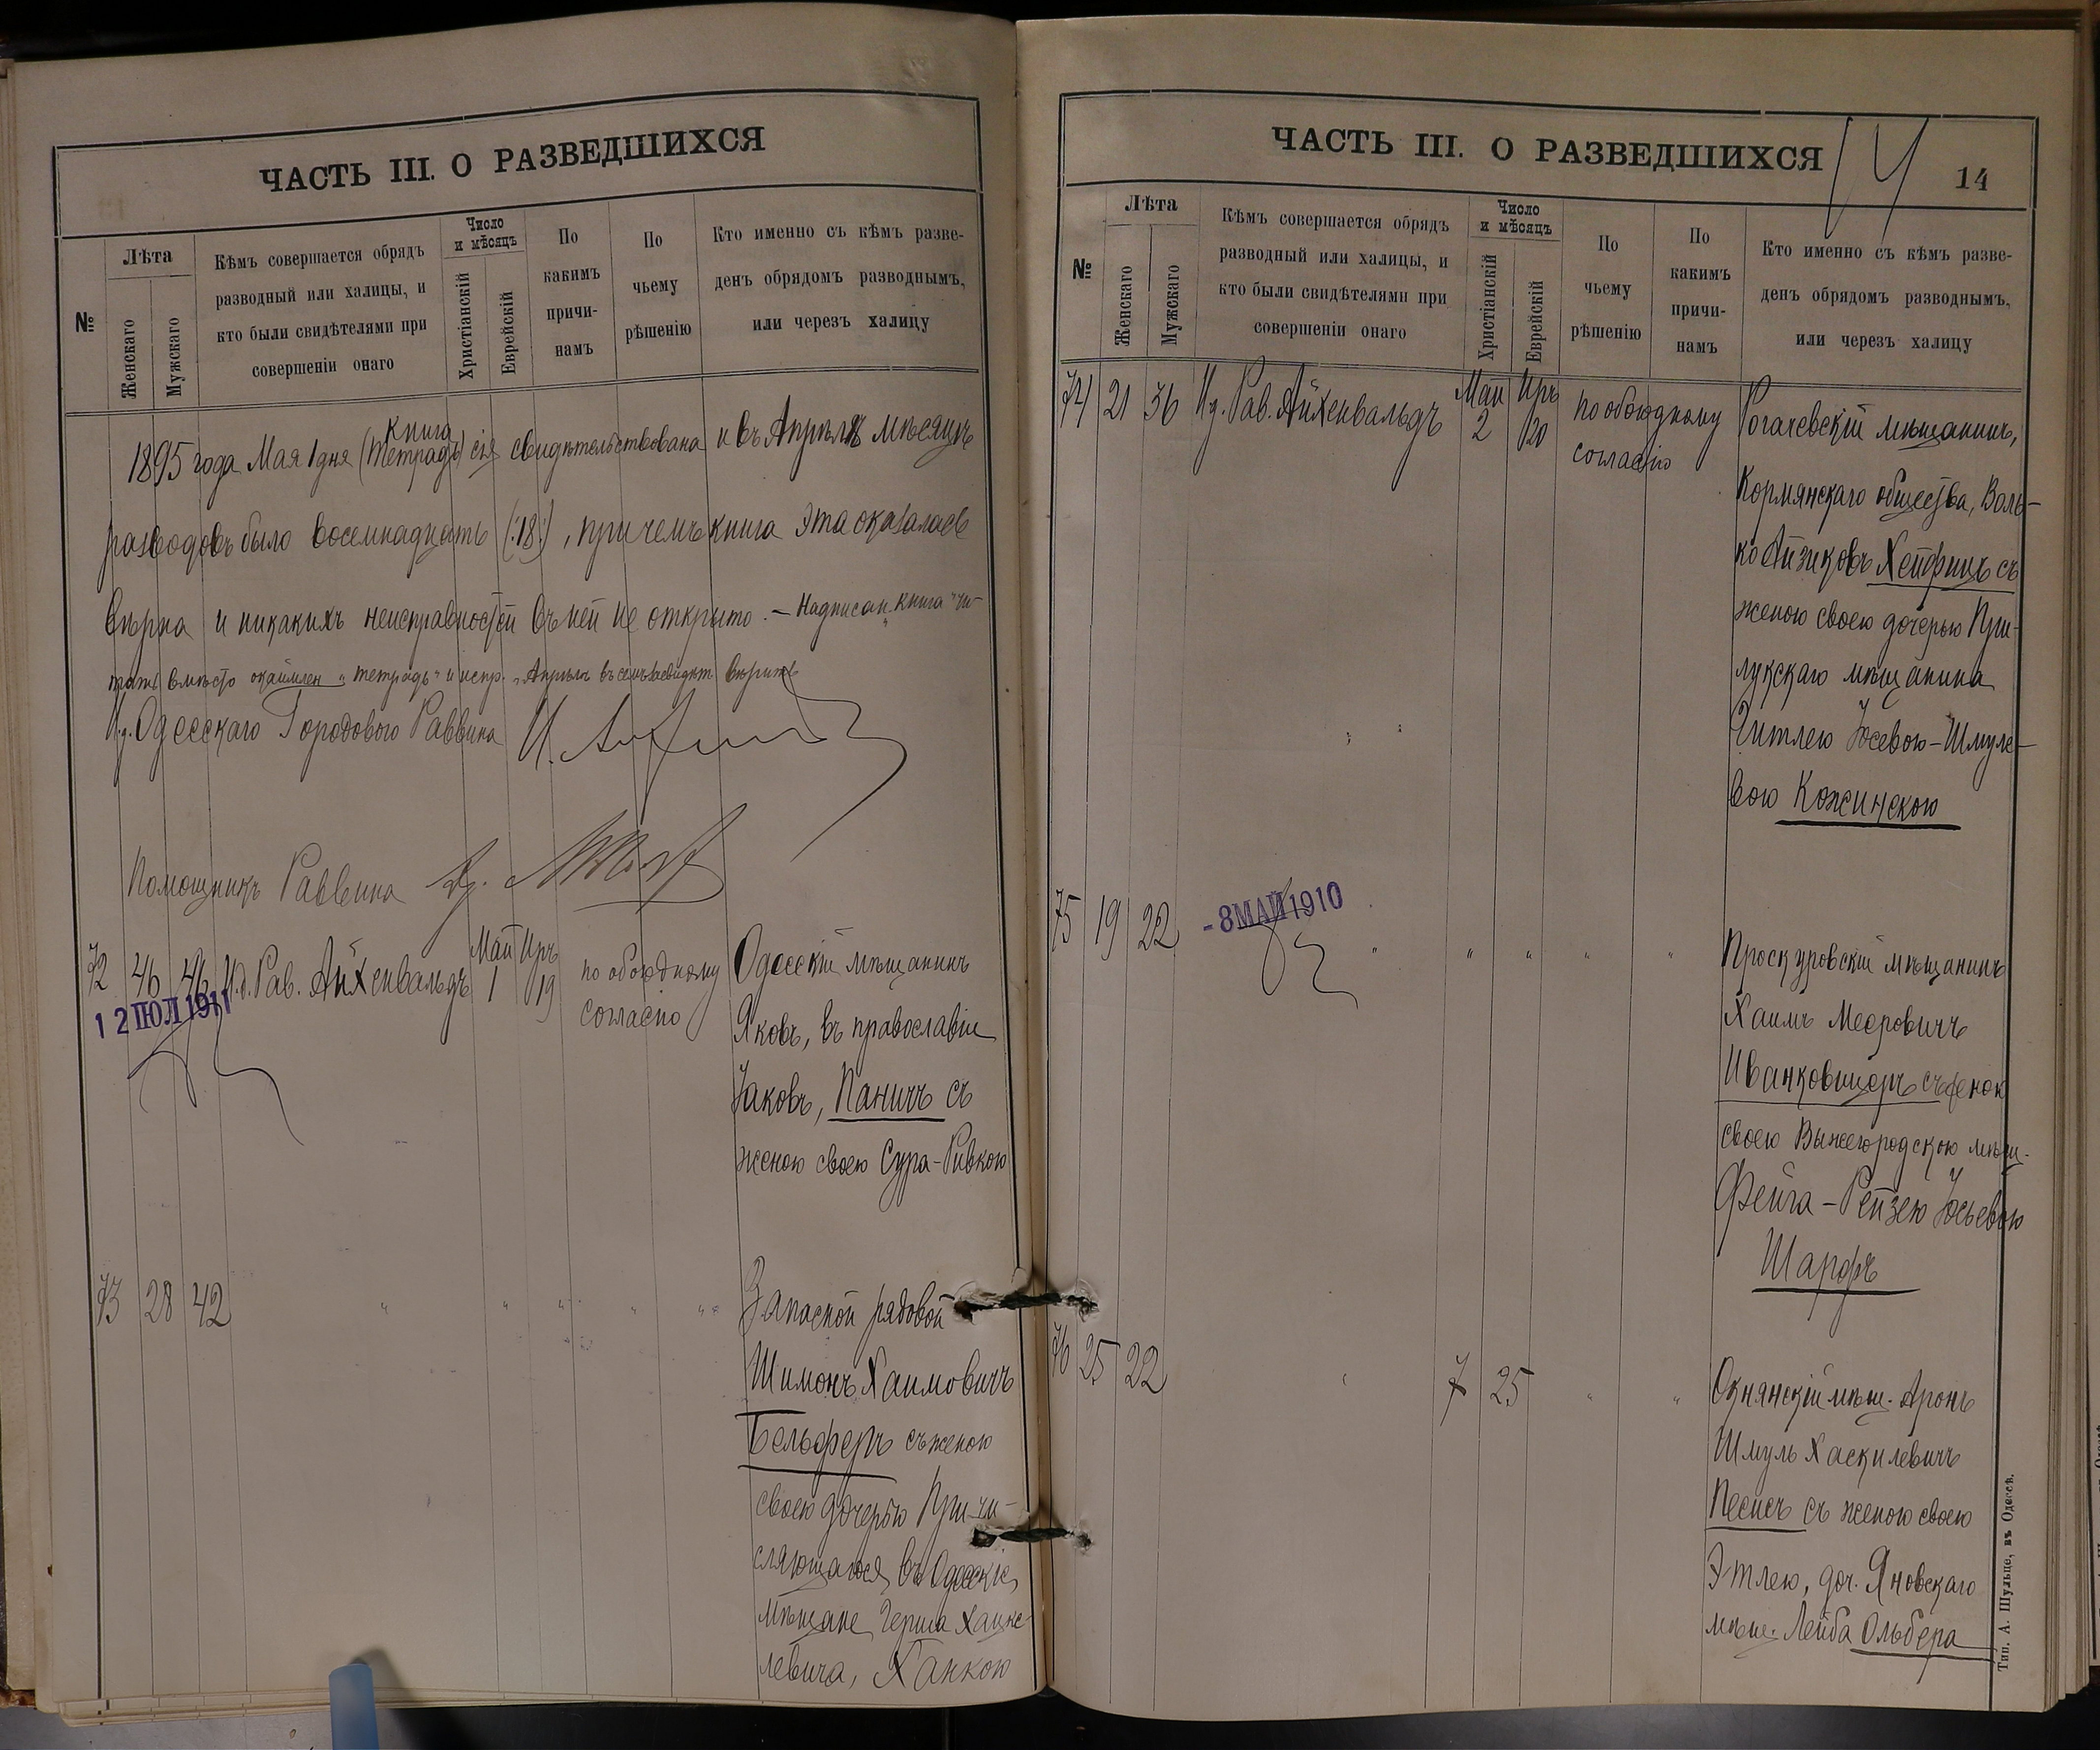 ЧАСТЬ III. О РАЗВЕДШИХСЯ
№
Лѣта
Женскаго
Мужскаго
Кѣмъ совершается обрядъ
разводный или халицы, и
кто были свидѣтелями при
совершеніи онаго
Число
и мѣсяцъ
Христіанскій
Еврейскій
По
какимъ
причи-
намъ
По
чьему
рѣшенію
Кто именно съ кѣмъ разве-
денъ обрядомъ разводнымъ,
или черезъ халицу
книга
1895 года Мая 1 дня (тетрадь) сія свидѣтельствована и въ Апрѣлѣ мѣсяцѣ
разводовъ было восемнадцать (:18:), при чемъ книга эта оказалась
вѣрна и никакихъ неисправностей въ ней не открыто. – Надписан. "книга" чи-
тать вмѣсто "тетрадь" и испр. "Апрѣлѣ
И.д. Одесскаго Городового Раввина
Помощникъ Раввина
72 46 46 И.д. Рав. Айхенвальдъ Май 1 Иръ 19 по обоюдному
согласію
12 ІЮЛ 1911
Одесскій мѣщанинъ
Яковъ, въ православіи
Іаковъ, Паничъ съ
женою своею Сура-Ривкою
73 28 42 " " " " "
Запасной рядовой
Шимонъ Хаимовичъ
Бельферъ съ женою
своею дочерью При-чи-
сляющагося въ Одесскіе
мѣщане Герша Хацке-
левича, Ханкою
ЧАСТЬ III. О РАЗВЕДШИХСЯ
14
14
№
Лѣта
Женскаго
Мужскаго
Кѣмъ совершается обрядъ
разводный или халицы, и
кто были свидѣтелями при
совершеніи онаго
Число
и мѣсяцъ
Христіанскій
Еврейскій
По
чьему
рѣшенію
По
какимъ
причи-
намъ
Кто именно съ кѣмъ разве-
денъ обрядомъ разводнымъ,
или черезъ халицу
74 21 36 И.д. Рав. Айхенвальдъ Май 2 Иръ 20 по обоюдному
согласію
Рогачевскій мѣщанинъ,
Кормянскаго общества, Воль-
ко Айзиковъ Хейфицъ съ
женою своею дочерью При-
лукскаго мѣщанина
Читлею Іосевою-Шмуле-
вою Кожинскою
75 19 22 " " " " "
- 8 МАЙ 1910
Проскуровскій мѣщанинъ
Хаимъ Мееровичъ
Иванковицеръ съ женою
своею Вышегородскою мѣщ.
Фейга-Рейзею Іосьевою
Шарфъ
76 25 22 " 7 25 " "
Окнянскій мѣщ. Аронъ
Шмуль Хаскилевичъ
Песисъ съ женою своею
Этлею, доч. Яновскаго
мѣщ. Лейба Ольбера
Тип. А. Шульце, въ Одессѣ.